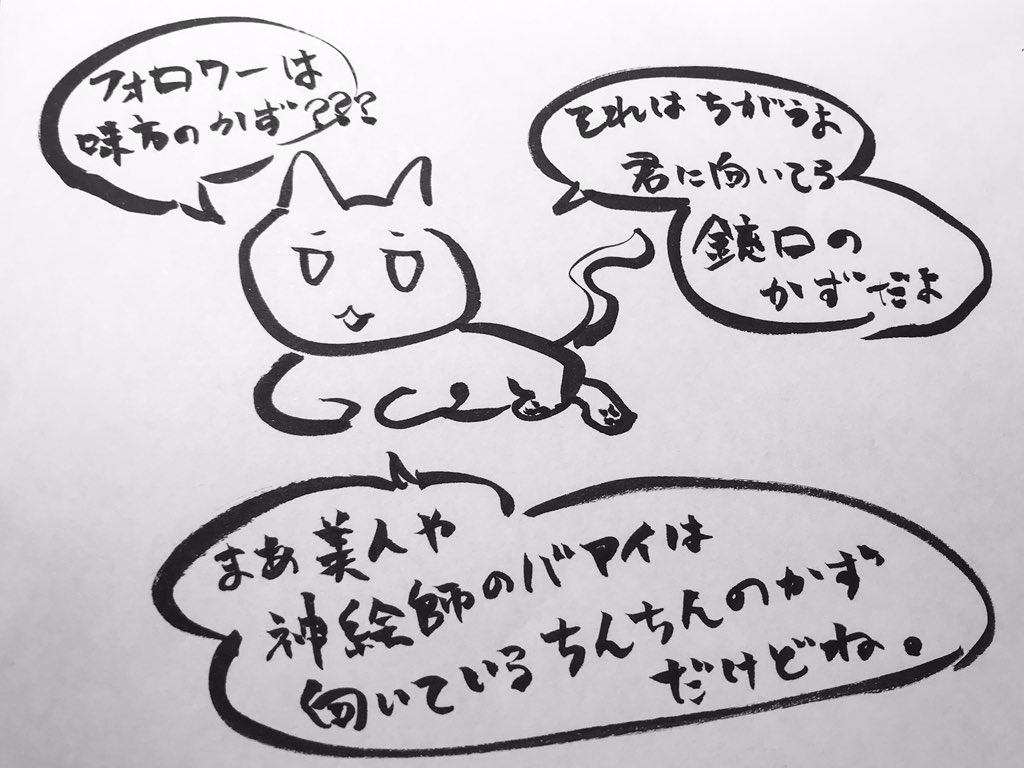 フォロワーは
味方のかず???
それはちがうよ
君に向いてる
銃口の
かずだよ
まあ美人や
神絵師のバアイは
向いているちんちんのかず
だけどね。